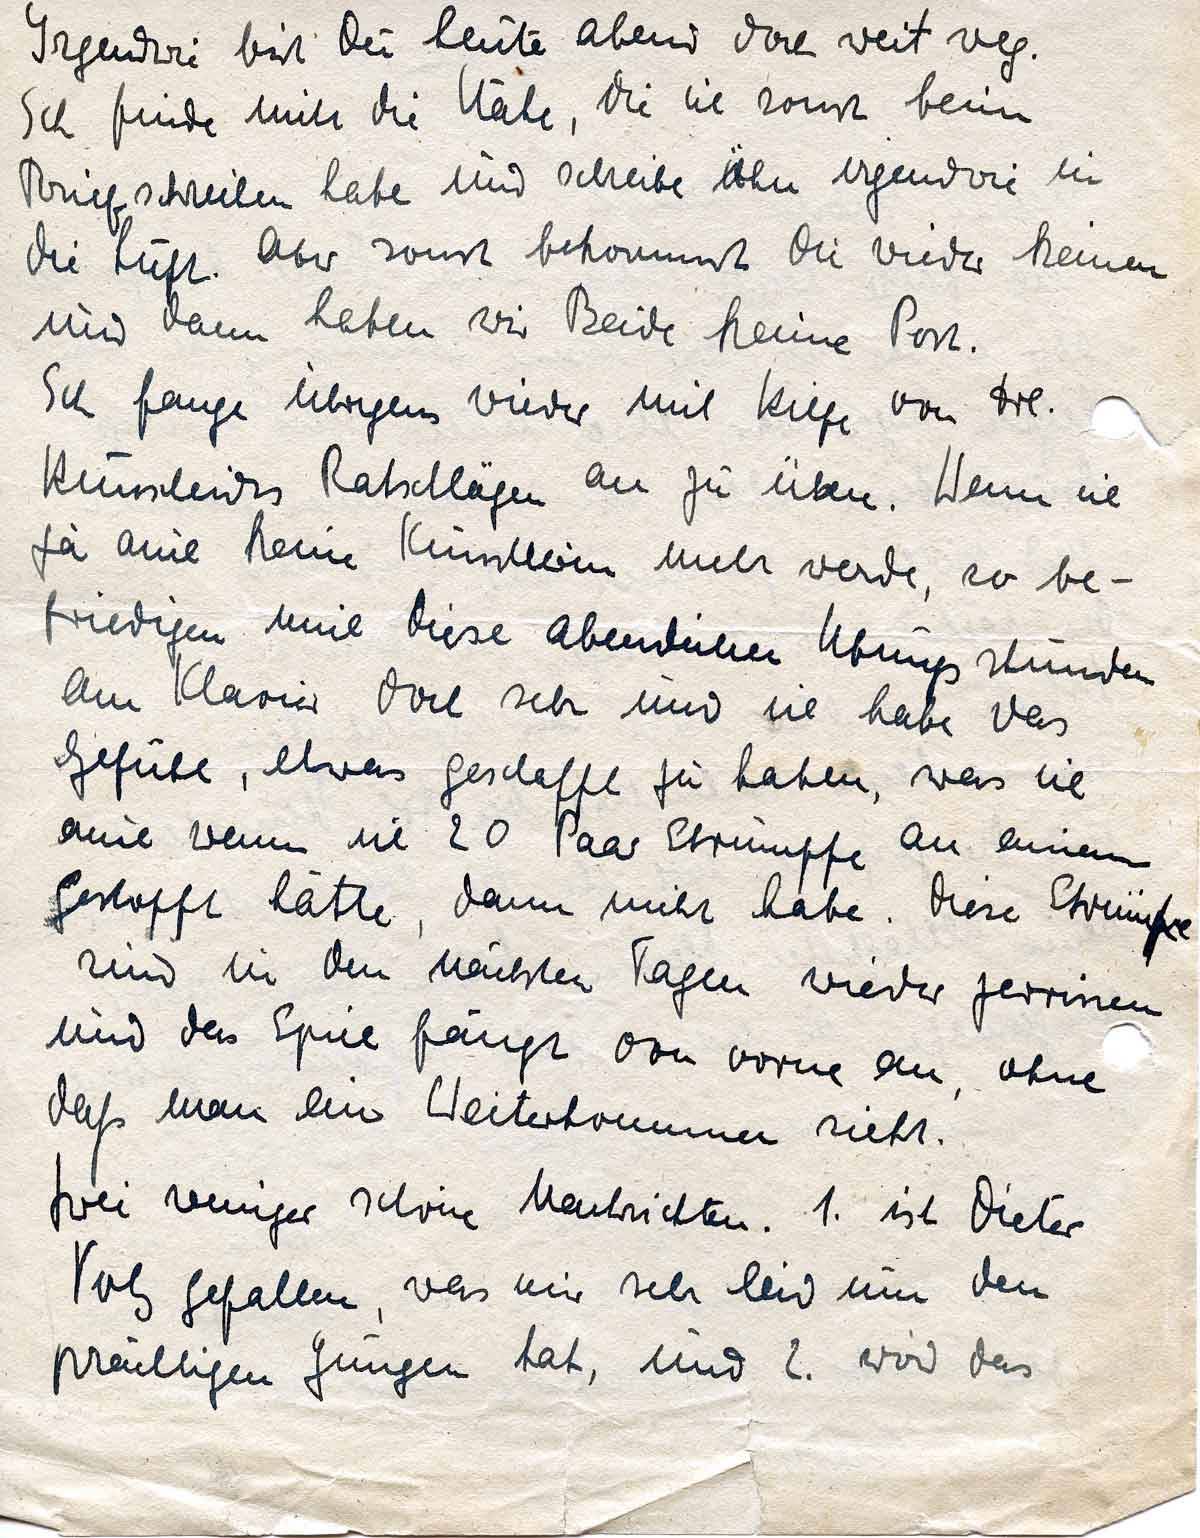 Irgendwie bist Du heute abend doch weit weg.
Ich finde nicht die Nähe, die ich sonst beim
Briefschreiben habe und schreibe irgendwie in
die Luft. Aber sonst bekommst Du wieder keinen
und dann haben wir Beide keine Post.
Ich fange übrigens wieder mit Hilfe von
Ratschlägen an zu üben. Wenn ich
ja auch keine Künstlerin mehr werde, so be-
friedigen mich diese abendlichen Übungsstunden
am Klavier doch sehr und ich habe das
Gefühl, etwas geschafft zu haben, was ich
auch wenn ich 20 Paar Strümpfe an einem
gestopft hätte, dann nicht habe. Diese Strümpfe
sind in den nächsten Tagen wieder zerrissen
und das Spiel fängt von vorne an, ohne
daß man ein Weiterkommen sieht.
Zwei weniger schöne Nachrichten. 1. ist Dieter
Volz gefallen, was mir sehr leid um den
prächtigen Jungen tat, und 2. wird das